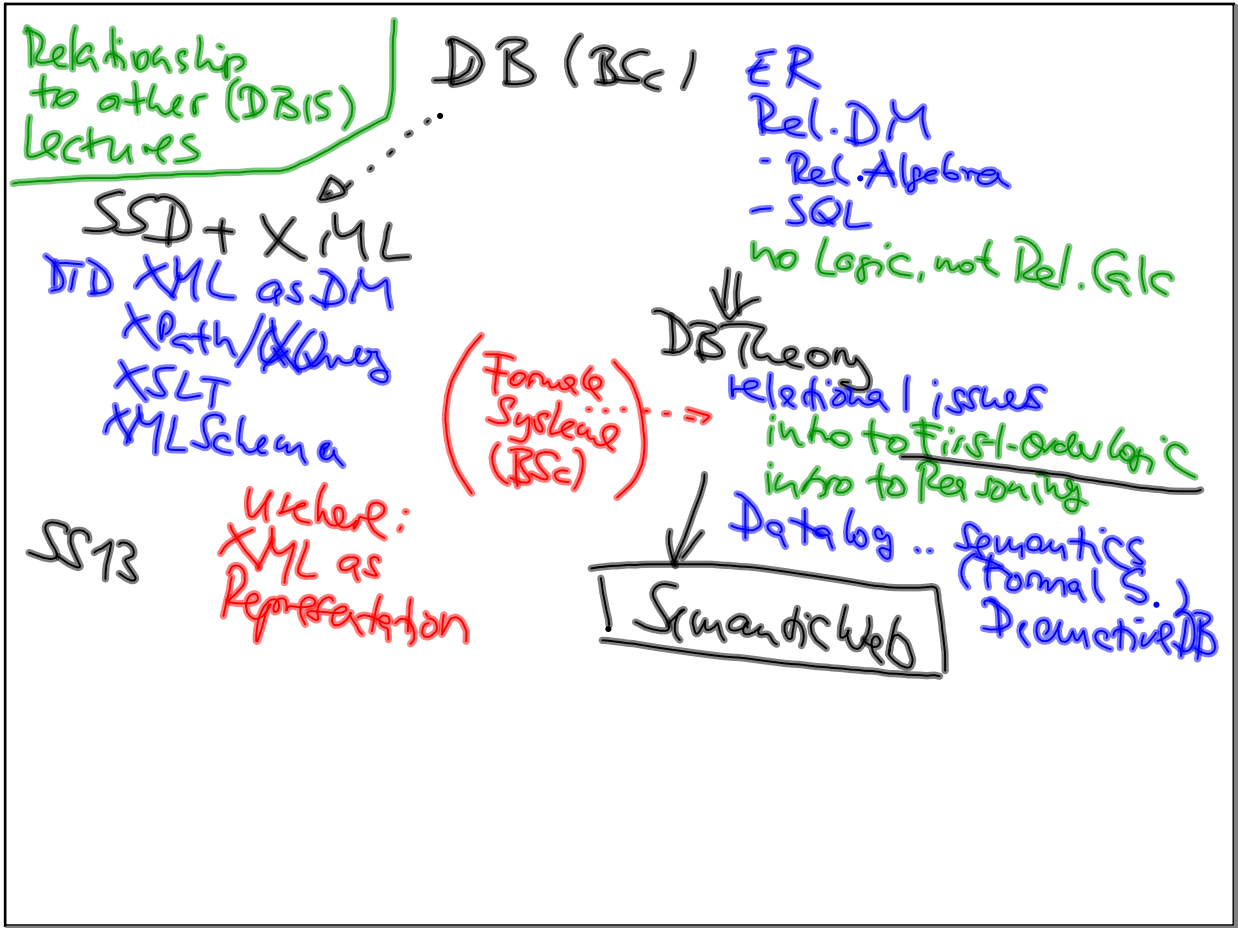 Relationship
to other (DBIS)
Lectures
DB (BSc)
ER
Rel. DM
- Rel. Algebra
- SQL
no Logic, not Rel. Calc
SSD + XML
DTD XML as DM
XPath/XQuery
XSLT
XMLSchema
SS13
(Formale
Systeme
(BSc))
DBTheory
relational issues
intro to First-Order Logic
intro to Reasoning
Datalog .. Semantics
(Formal S.)
DeductiveDB
here:
XML as
Representation
SemanticWeb